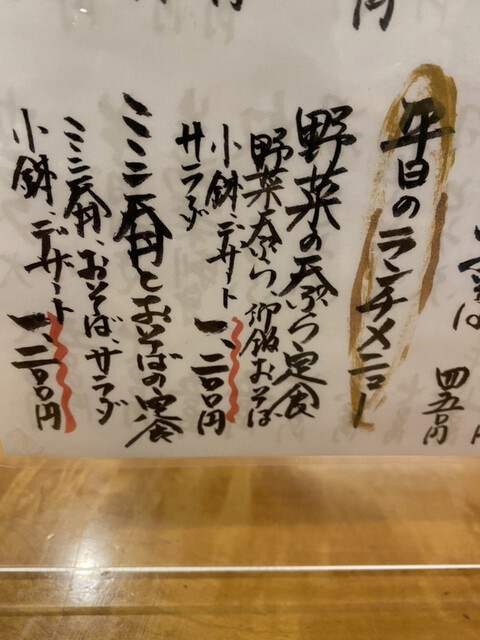 四五〇円
平日のランチメニュー
野菜の天ぷら定食
野菜天ぷら、御飯、おそば
小鉢、デザート
サラダ
一、二〇〇円
ミニ天丼とおそばの定食
ミニ天丼、おそば、サラダ
小鉢、デザート
一、二〇〇円